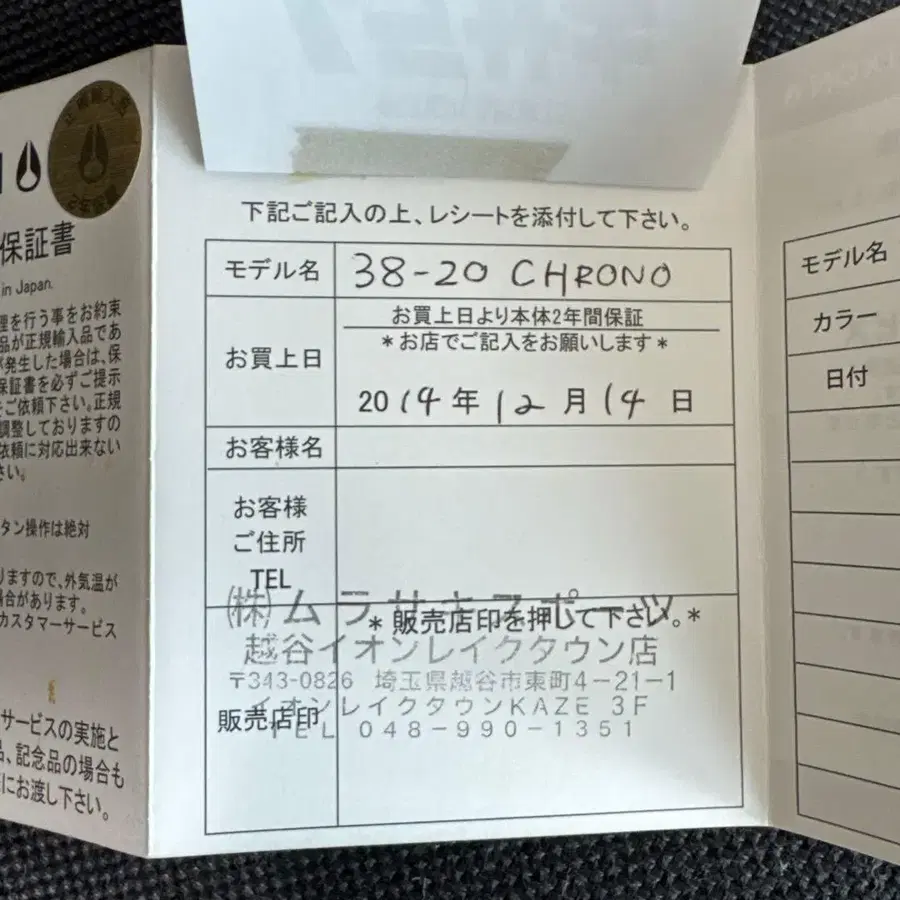 正規輸入品
2年保証
保証書
in Japan.
理を行う事をお約束
品が正規輸入品であ
が発生した場合は、保
保証書を必ずご提示
をご依頼下さい。正規
調整しておりますの
依頼に対応出来ない
さい。
タン操作は絶対
りますので、外気温が
場合があります。
カスタマーサービス
サービスの実施と
品、記念品の場合も
にお渡し下さい。
下記ご記入の上、レシートを添付して下さい。
モデル名 38-20 CHRONO
お買上日より本体2年間保証
*お店でご記入をお願いします*
お買上日
2014年12月14日
お客様名
お客様
ご住所
TEL
*販売店印を押して下さい。*
㈱ムラサキスポーツ
越谷イオンレイクタウン店
〒343-0826 埼玉県越谷市東町4-21-1
イオンレイクタウンKAZE 3F
TEL 048-990-1351
販売店印
モデル名
カラー
日付